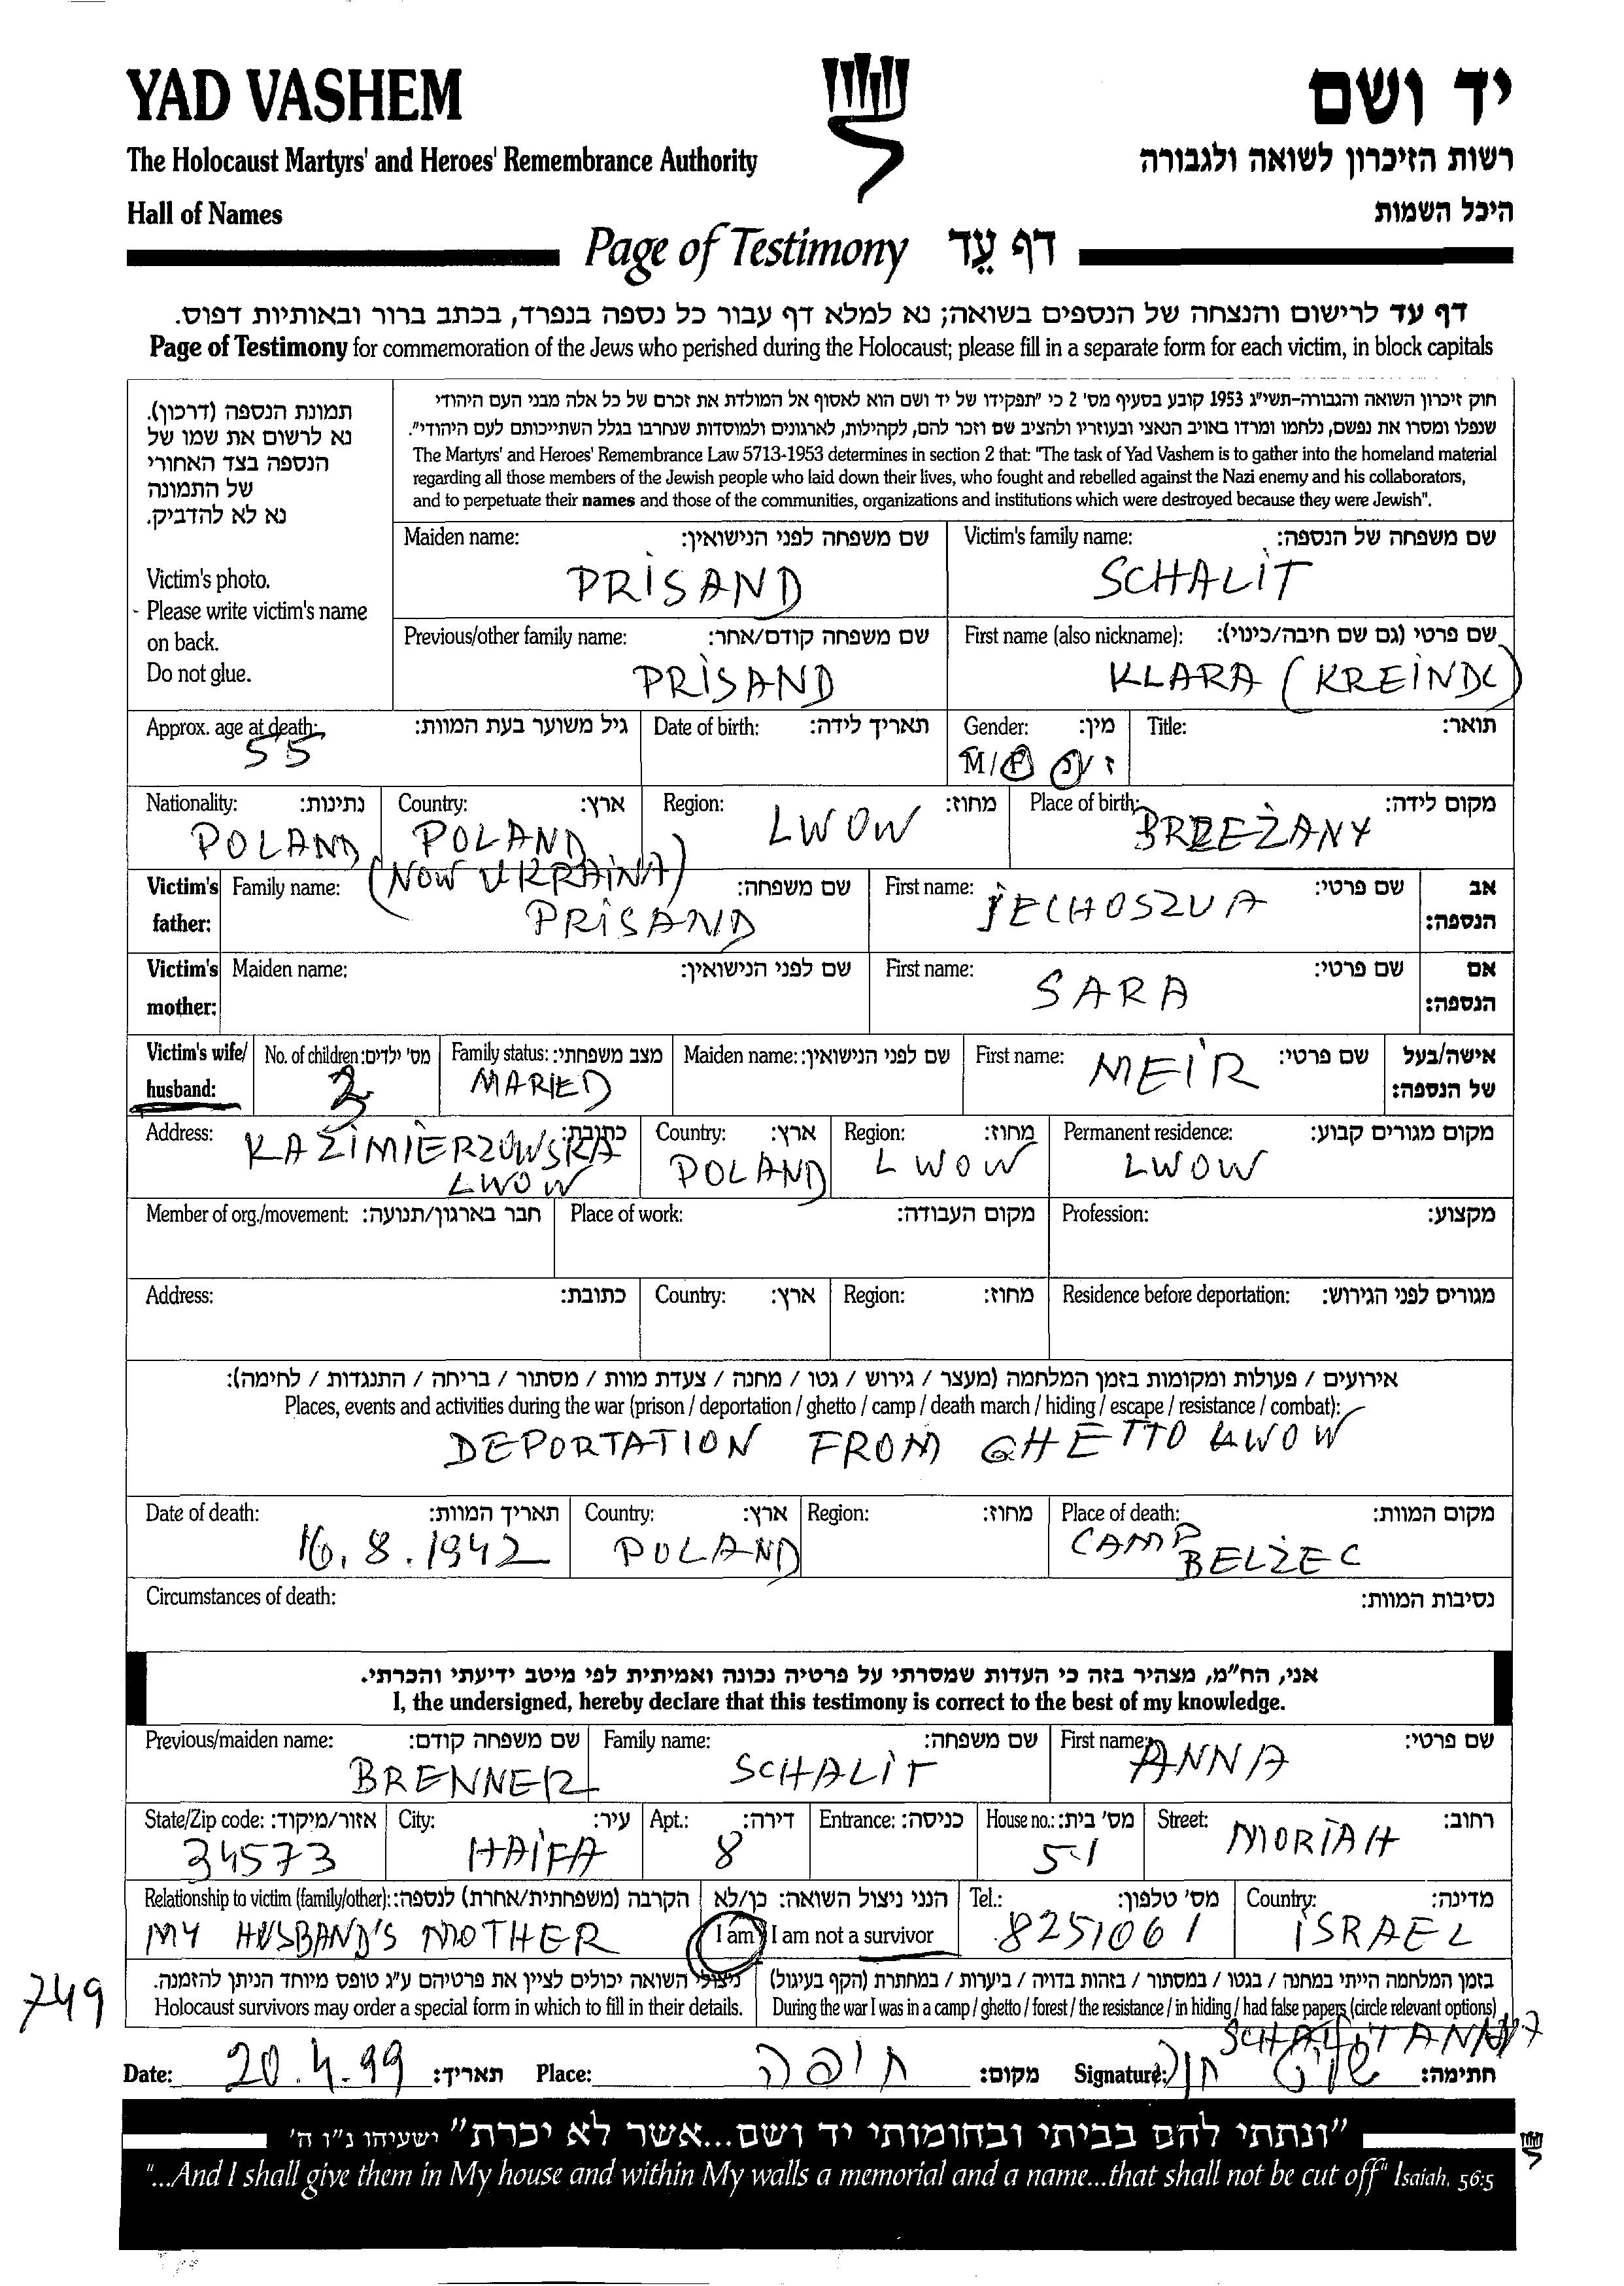 YAD VASHEM
יד ושם
The Holocaust Martyrs' and Heroes' Remembrance Authority
רשות הזיכרון לשואה ולגבורה
Hall of Names
היכל השמות
Page of Testimony דף עֵד
דף עד לרישום והנצחה של הנספים בשואה; נא למלא דף עבור כל נספה בנפרד, בכתב ברור ובאותיות דפוס.
Page of Testimony for commemoration of the Jews who perished during the Holocaust; please fill in a separate form for each victim, in block capitals
תמונת הנספה (דרכון).
נא לרשום את שמו של
הנספה בצד האחורי
של התמונה
נא לא להדביק.
Victim's photo.
Please write victim's name
on back.
Do not glue.
חוק זיכרון השואה והגבורה-תשי"ג 1953 קובע בסעיף מס' 2 כי "תפקידו של יד ושם הוא לאסוף אל המולדת את זכרם של כל אלה מבני העם היהודי
שנפלו ומסרו את נפשם, נלחמו ומרדו באויב הנאצי ובעוזריו ולהציב שם וזכר להם, לקהילות, לארגונים ולמוסדות שנחרבו בגלל השתייכותם לעם היהודי".
The Martyrs' and Heroes' Remembrance Law 5713-1953 determines in section 2 that: "The task of Yad Vashem is to gather into the homeland material
regarding all those members of the Jewish people who laid down their lives, who fought and rebelled against the Nazi enemy and his collaborators,
and to perpetuate their names and those of the communities, organizations and institutions which were destroyed because they were Jewish".
Maiden name: שם משפחה לפני הנישואין:
PRISAND
Victim's family name: שם משפחה של הנספה:
SCHALIT
Previous/other family name: שם משפחה קודם/אחר:
PRISAND
First name (also nickname): שם פרטי (גם שם חיבה/כינוי):
KLARA (KREINDL)
Approx. age at death: גיל משוער בעת המוות:
55
Date of birth: תאריך לידה:
Gender: מין:
M/F ז/נ
Title: תואר:
Nationality: נתינות:
POLAND
Country: ארץ:
POLAND
(NOW UKRAINA)
Region: מחוז:
LWOW
Place of birth: מקום לידה:
BRZEŻANY
Victim's father:
Family name: שם משפחה:
PRISAND
First name: שם פרטי:
JECHOSZUA
אב הנספה:
Victim's mother:
Maiden name: שם לפני הנישואין:
First name: שם פרטי:
SARA
אם הנספה:
Victim's wife/ husband:
No. of children: מס' ילדים:
Family status: מצב משפחתי:
MARIED
Maiden name: שם לפני הנישואין:
First name: שם פרטי:
MEIR
אישה/בעל של הנספה:
Address: כתובת:
KAZIMIERZOWSKA
LWOW
Country: ארץ:
POLAND
Region: מחוז:
LWOW
Permanent residence: מקום מגורים קבוע:
LWOW
Member of org./movement: חבר בארגון/תנועה:
Place of work: מקום העבודה:
Profession: מקצוע:
Address: כתובת:
Country: ארץ:
Region: מחוז:
Residence before deportation: מגורים לפני הגירוש:
אירועים / פעולות ומקומות בזמן המלחמה (מעצר / גירוש / גטו / מחנה / צעדת מוות / מסתור / בריחה / התנגדות / לחימה):
Places, events and activities during the war (prison / deportation / ghetto / camp / death march / hiding / escape / resistance / combat):
DEPORTATION FROM GHETTO LWOW
Date of death: תאריך המוות:
16.8.1942
Country: ארץ:
POLAND
Region: מחוז:
Place of death: מקום המוות:
CAMP
BELŻEC
Circumstances of death: נסיבות המוות:
אני, הח"מ, מצהיר בזה כי העדות שמסרתי על פרטיה נכונה ואמיתית לפי מיטב ידיעתי והכרתי.
I, the undersigned, hereby declare that this testimony is correct to the best of my knowledge.
Previous/maiden name: שם משפחה קודם:
BRENNER
Family name: שם משפחה:
SCHALIT
First name: שם פרטי:
ANNA
State/Zip code: אזור/מיקוד:
34573
City: עיר:
HAIFA
Apt.: דירה:
8
Entrance: כניסה:
House no.: מס' בית:
51
Street: רחוב:
MORIAH
Relationship to victim (family/other): הקרבה (משפחתית/אחרת) לנספה:
MY HUSBAND'S MOTHER
הנני ניצול השואה: כן/לא
I am / I am not a survivor
Tel.: מס' טלפון:
8251061
Country: מדינה:
ISRAEL
749
ניצולי השואה יכולים לציין את פרטיהם ע"ג טופס מיוחד הניתן להזמנה.
Holocaust survivors may order a special form in which to fill in their details.
בזמן המלחמה הייתי במחנה / בגטו / במסתור / בזהות בדויה / ביערות / במחתרת (הקף בעיגול)
During the war I was in a camp / ghetto / forest / the resistance / in hiding / had false papers (circle relevant options)
SCHALIT ANNA
Date: 20.4.99 תאריך: Place: חיפה מקום: Signature: שליט חנה חתימה:
"ונתתי להם בביתי ובחומותי יד ושם...אשר לא יכרת" ישעיהו נ"ו ה'
"...And I shall give them in My house and within My walls a memorial and a name...that shall not be cut off" Isaiah, 56:5